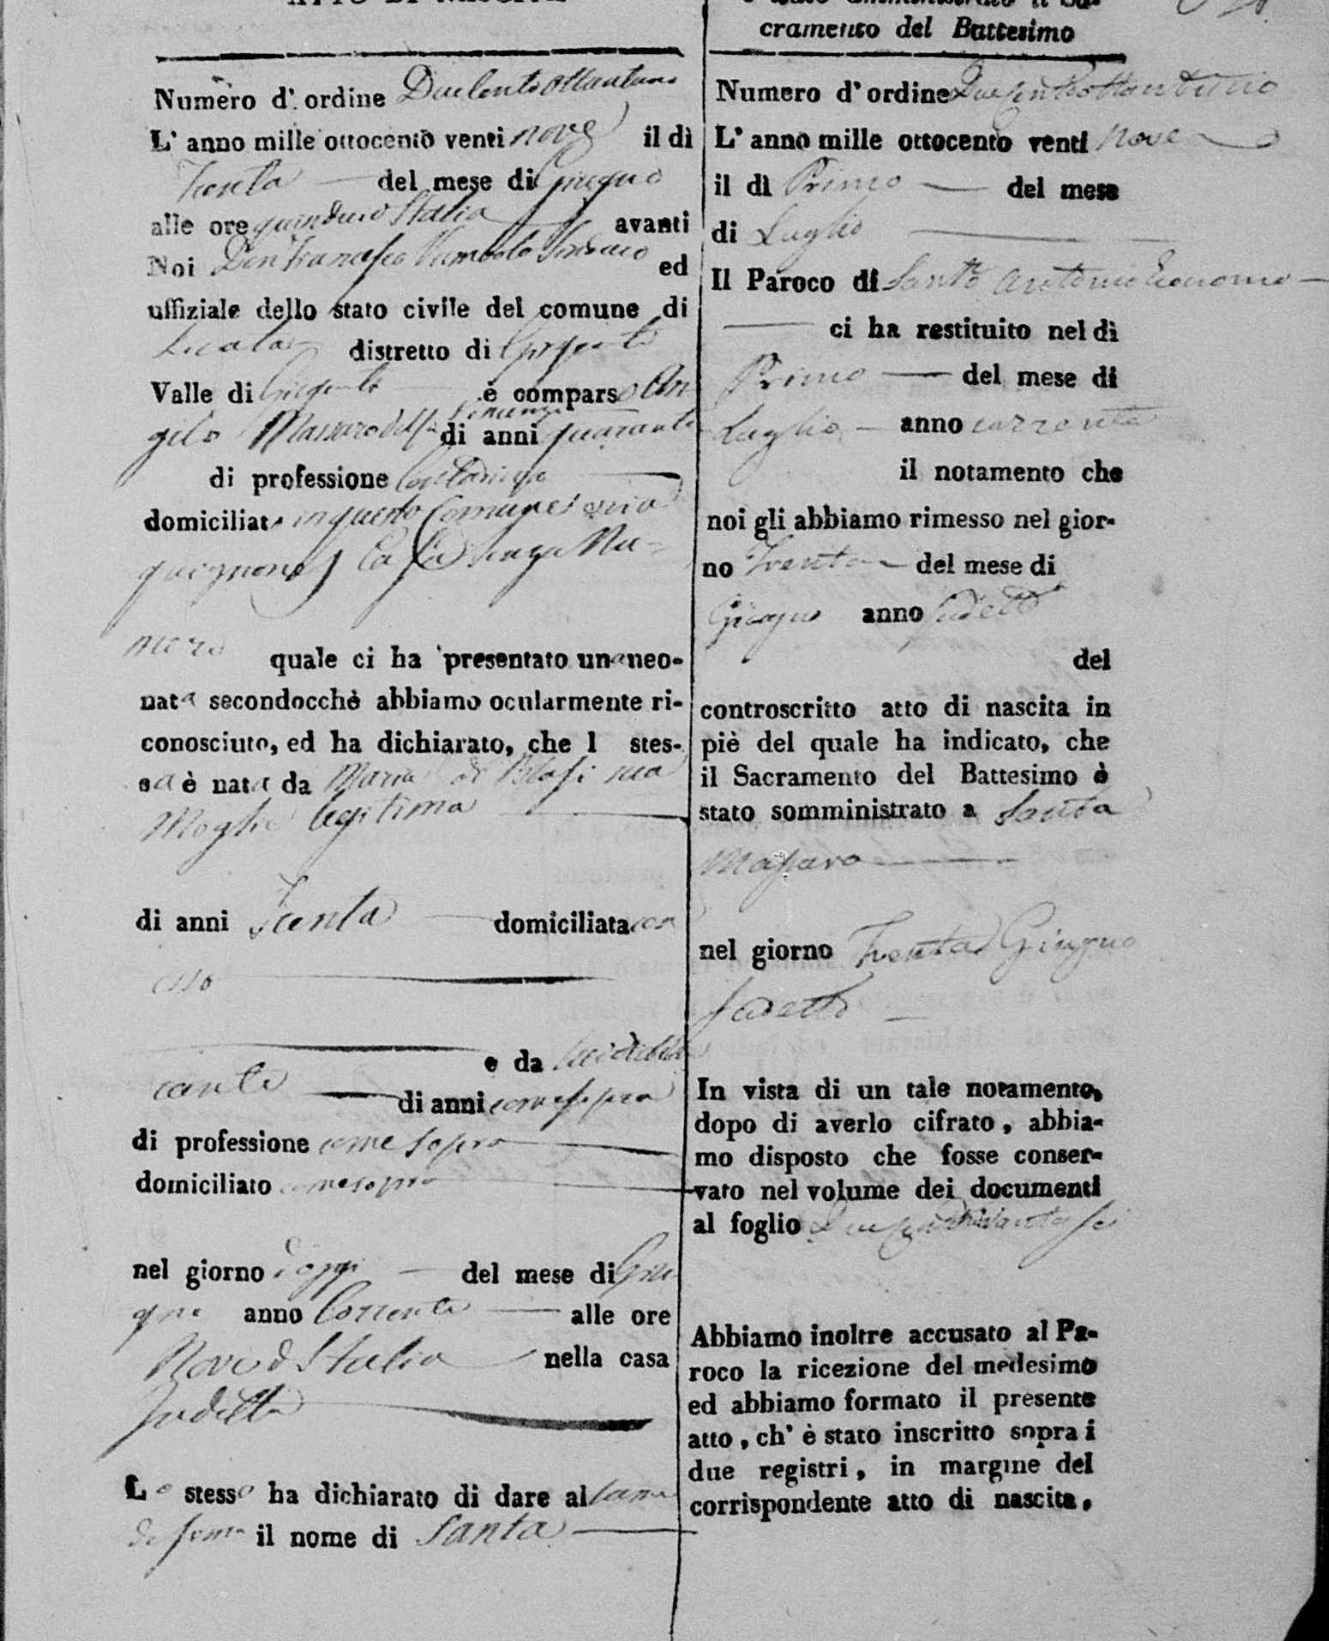 cramento del Battesimo
Numero d'. ordine Duecento ottantuno
L' anno mille ottocento venti nove il dì
Trenta del mese di Giugno
alle ore quindici d'Italia avanti
Noi Don Francesco Sindaco ed
uffiziale dello stato civile del comune di
Licata distretto di Girgenti
Valle di Girgenti è comparso An
gelo Massaro di anni quaranta
di professione Contadino
domiciliato in questo Comune
Casa senza Nu=
mero quale ci ha presentato una neo-
nata secondocchè abbiamo ocularmente ri-
conosciuto, ed ha dichiarato, che l stes-
sa è nata da Maria di Blasi sua
Moglie legitima
di anni Trenta domiciliata con
esso
e da sudichia
rante di anni come sopra
di professione come sopra
domiciliato come sopra
nel giorno d'oggi del mese di Giu
gno anno Corrente alle ore
Nove d'Italia nella casa
sudetta
Lo stesso ha dichiarato di dare al
il nome di Santa
Numero d' ordine Duecentottantuno
L' anno mille ottocento venti nove
il dì Primo del mese
di Luglio
Il Paroco di Santo Antonio Economo
ci ha restituito nel dì
Primo del mese di
Luglio anno corrente
il notamento che
noi gli abbiamo rimesso nel gior-
no Trenta del mese di
Giugno anno sudetto
del
controscritto atto di nascita in
piè del quale ha indicato, che
il Sacramento del Battesimo è
stato somministrato a Santa
Massaro
nel giorno Trenta Giugno
sudetto
In vista di un tale notamento,
dopo di averlo cifrato, abbia-
mo disposto che fosse conser-
vato nel volume dei documenti
al foglio
Abbiamo inoltre accusato al Pa-
roco la ricezione del medesimo
ed abbiamo formato il presente
atto, ch' è stato inscritto sopra i
due registri, in margine del
corrispondente atto di nascita.